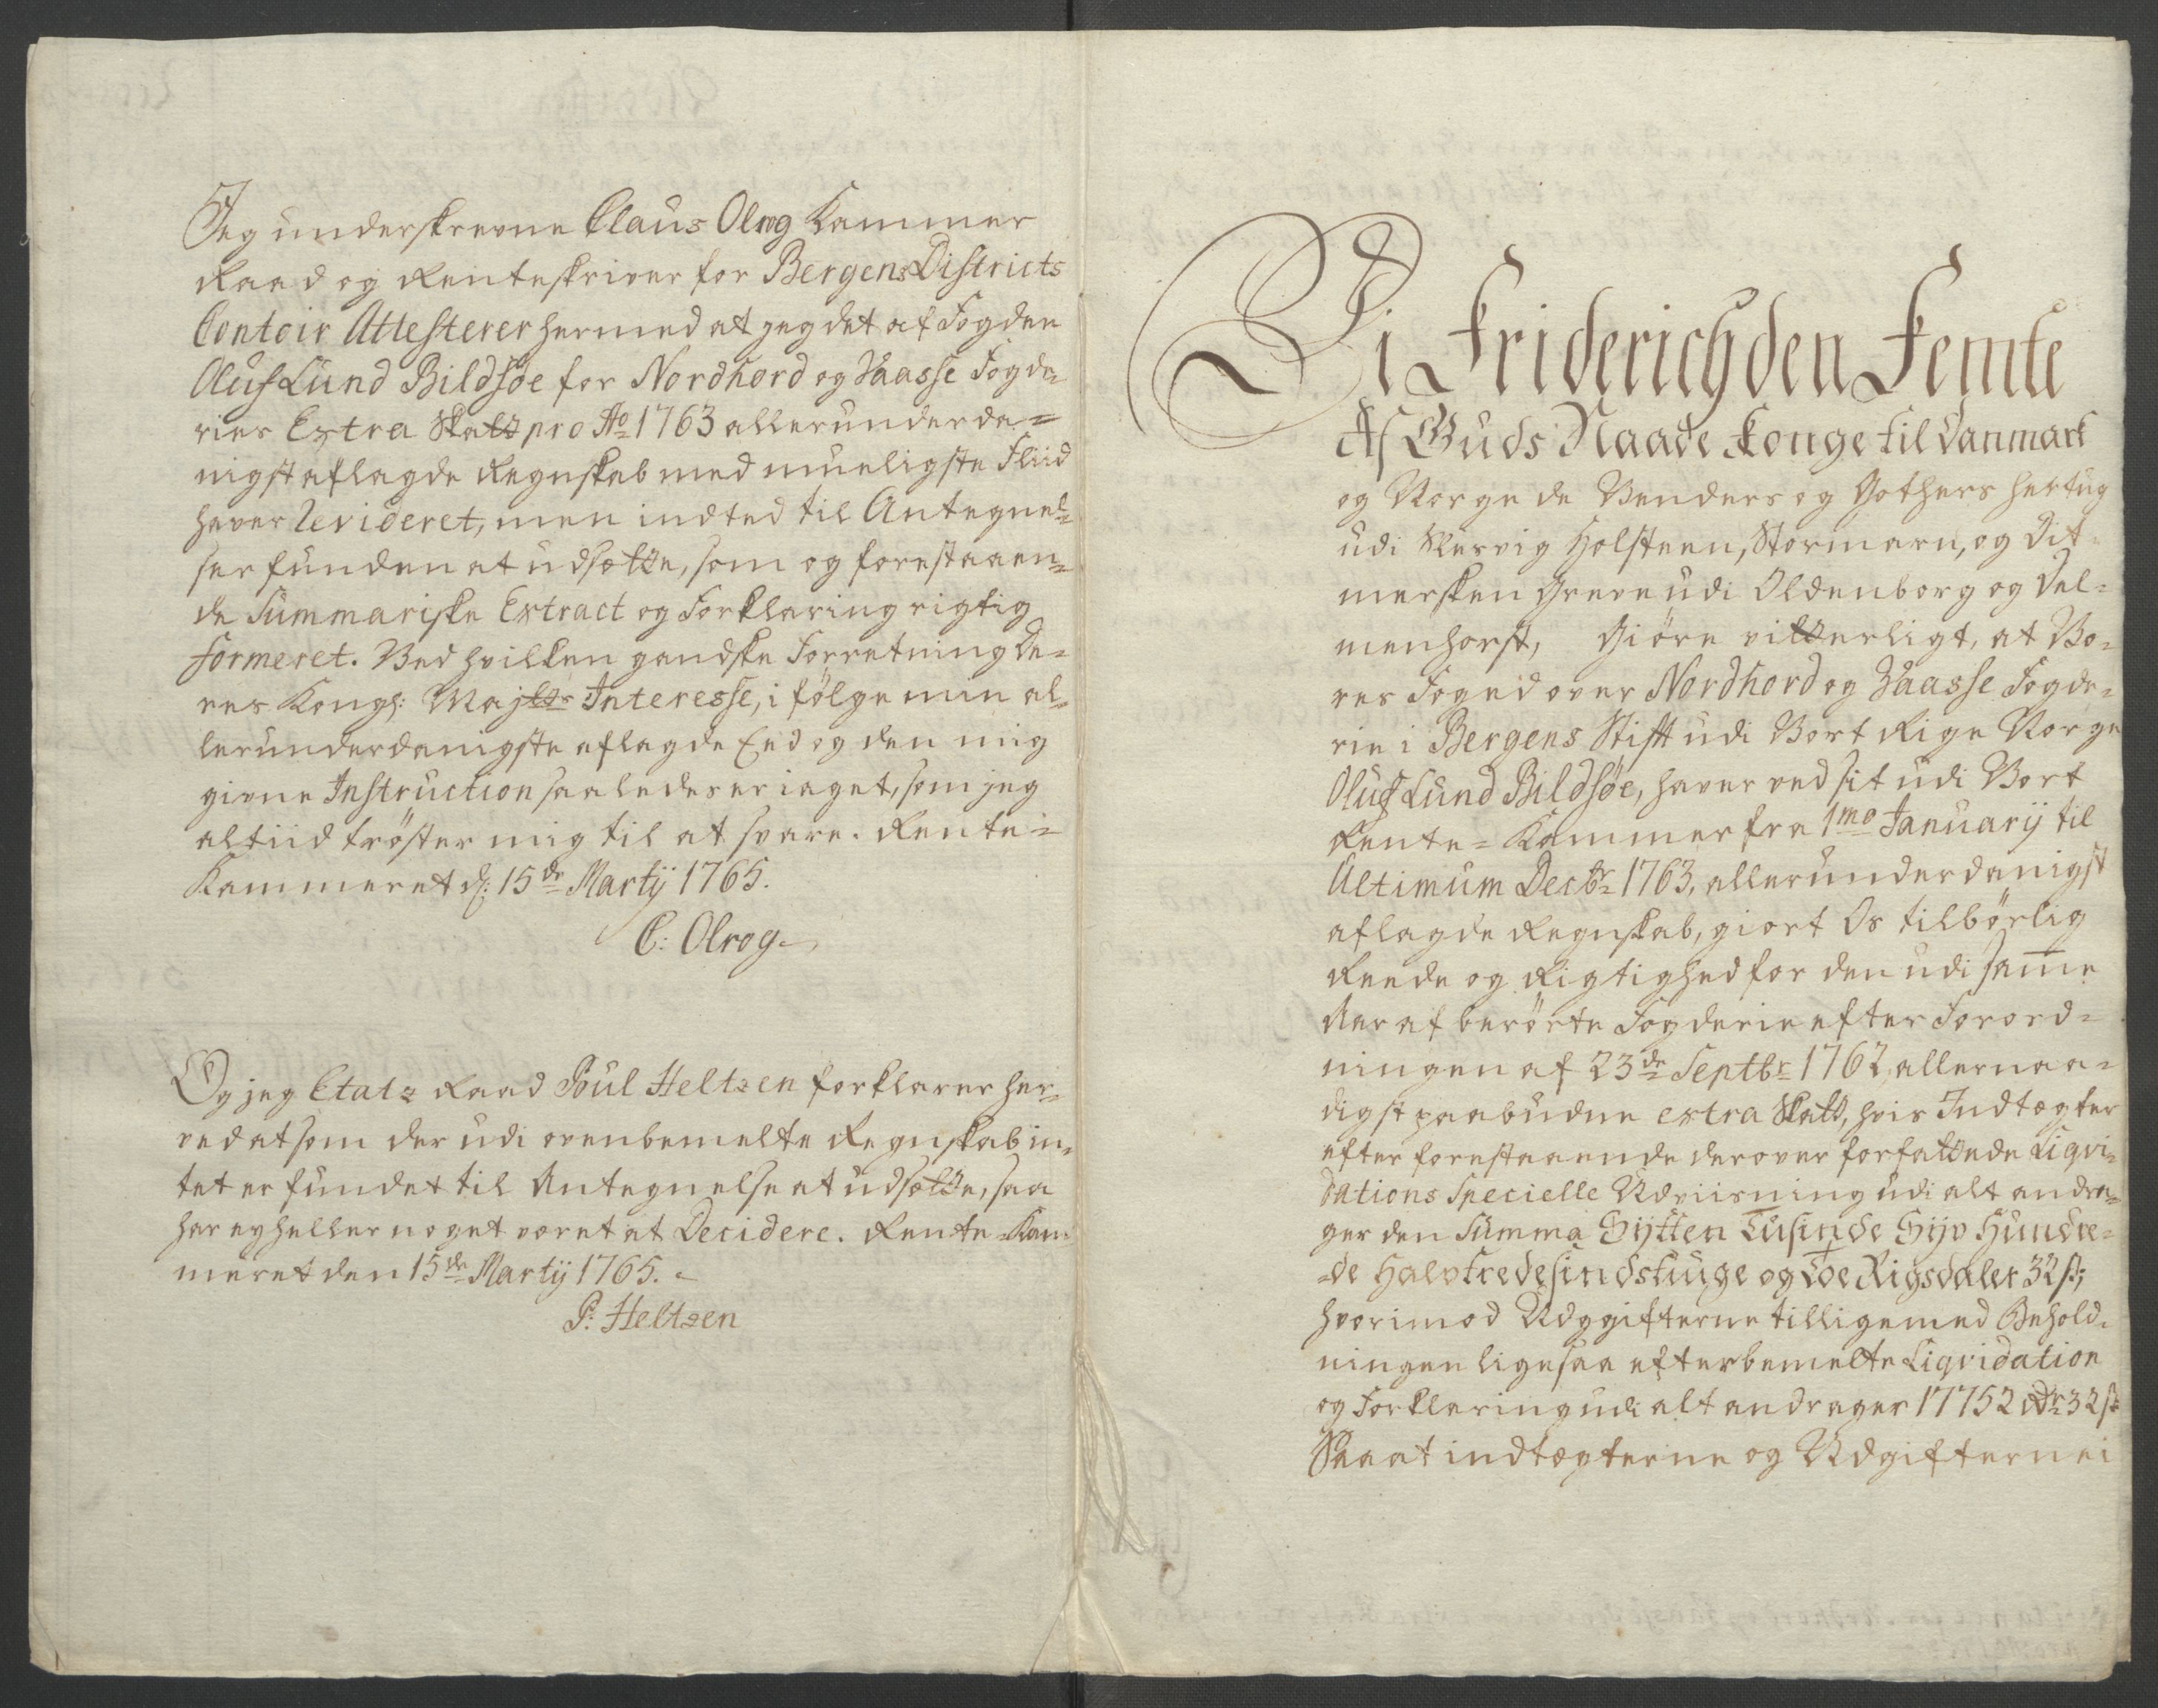 Jeg underskrevne Claus Olrog Kammer
Raad og Renteskriver for Bergens Districts
Contoir Attesterer hermed at jeg det af Fogden
Oluf Lund Bildsøe for Nordhord og Vaasse Fogde-
ries Extra Skatt pro Ao 1763 allerunderda-
nigst aflagde Regnskab med mueligste Fliid
haver Revideret, men indted til Antegnel-
ser funden at udsætte, som og forestaaen-
de Summariske Extract og Forklaring rigtig
formeret. Ved hvilken gandske Forretning De-
res Kongl: Majtts Interesse, i følge min al-
lerunderdanigste aflagde Eed og den mig
givne Instruction saaledes er iaget, som jeg
altiid trøster mig til at svare. Rente-
Kammeret d: 15de Martij 1765.
C: Olrog
Og jeg Etatz Raad Poul Heltzen forklarer her-
ved at som der udi ovenbemelte Regnskab in-
tet er fundet til Antegnelse at udsætte, saa
har ey heller noget voret at Decidere. Rente-Kam-
meret den 15de Martij 1765.
P: Heltzen
Vi Friderich den Femte
Af Guds Naade Konge til Danmark
og Norge de Venders og Gothers Hertug
udi Slesvig Holsteen, Stormarn, og Dit-
mersken Greve udi Oldenborg og Del-
menhorst, Giöre vitterligt, at Vo-
res Foged over Nordhord og Vaasse Fogde-
rie i Bergens Stift udi Vort Rige Norge
Oluf Lund Bildsøe, haver ved sit udi Vort
Rente-Kammer fra 1mo Januarij til
Ultimum Decbr 1763, allerunderdanigst
aflagde Regnskab, giort Os tilbörlig
Reede og Rigtighed for den udi sam̅e
Aar af berörte Fogderie efter Forord-
ningen af 23de Septbr 1762 allernaa-
digst paabudne extra Skatt, hvis Indtægter
efter forestaaende derover forfattede Liqvi-
dations Specielle Udviisning udi alt andra-
ger den Summa Sÿtten Tusinde Sÿv Hundre-
-de Halvtredesindstiuge og Toe Rigsdaler 32 s;
hvorimod Udggifterne tilligemed Behold-
ningen ligesaa efterbemelte Liqvidation
og Forklaring udi alt andrager 17752 rdr 32 s
Saa at indtægterne og Udgifterne i